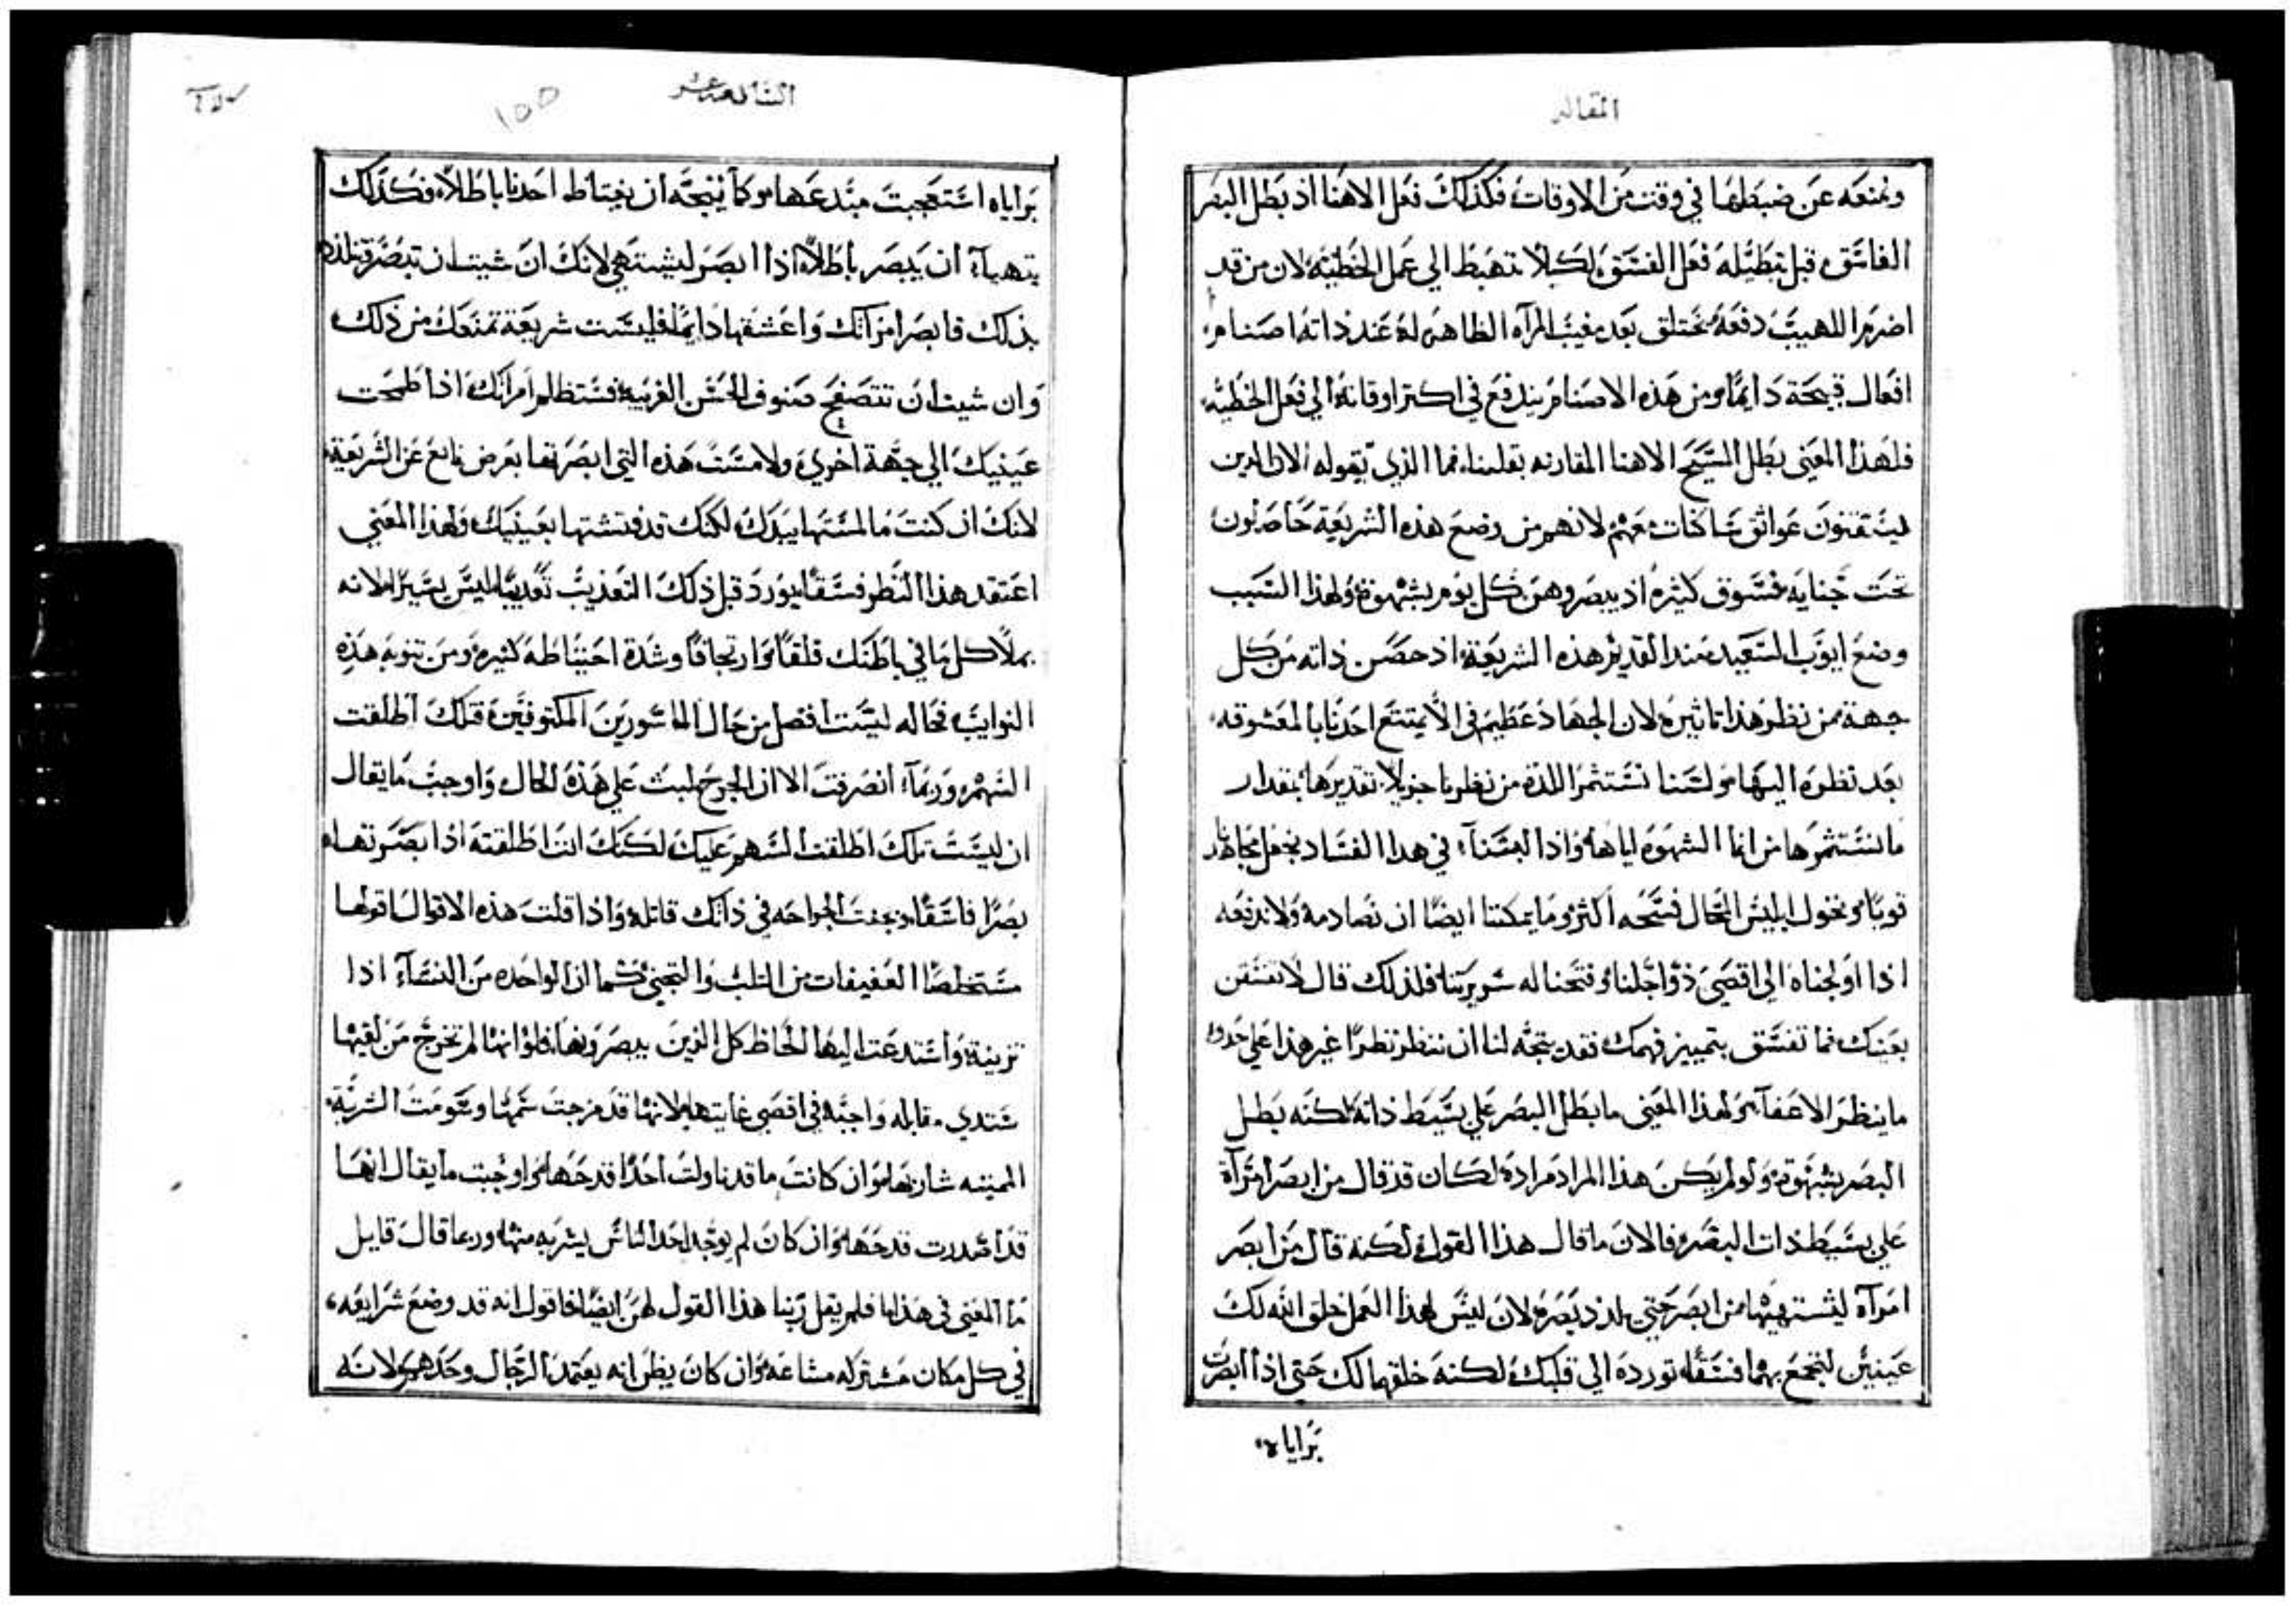 المقاله
ونمنعه عن ضبطها في وقت من الاوقات فكذلك فعل الاهنا اذ بطل البصر
الفاسق قبل تبطيله فعل الفسق لكيلا تهبط الي عمل الخطيه لان من قد
اضرم اللهيب دفعه يختلق بعد مغيب المرآه الظاهره له عند ذاته اصنام
افعال قبيحة دايما ومن هذه الاصنام يندفع في اكتر اوقاته الي فعل الخطيه
فلهذا المعني بطل المسيح الاهنا المقارنه بقلبنا فما الذي يقوله الان الدين
يستقنون عواتق ساكنات معهم لانهم من وضع هذه الشريعة حاصلون
تحت جنايه فسوق كثيره اذ يبصروهن كل يوم بشهوة ولهذا السبب
وضع ايوب السعيد منذ القديم هذه الشريعة اذ حصن ذاته من كل
جهة من نظر هذا تاثيره لان الجهاد عظيم في الا يمتع احدنا بالمعشوقه
بعد نظره اليها ولسنا نستثمر اللذة من نظرنا جزيلا تقديرها بمقدار
ما نستثمرها من انما الشهوه اياها واذا لبثنا في هدا الفساد نجعل مجاهدنا
قويا ونخول ابليس المحال فسحه اكثر وما يمكننا ايضا ان نصادمه ولا ندفعه
اذا اولجناه الي اقصي ذواخلنا وفتحنا له سريرتنا فلذلك قال لا تفسقن
بعينك فما تفسق بتمييز فهمك فقد يتجه لنا ان ننظر نظرا غير هذا علي حذو
ما ينظر الاعفآء ولهذا المعني ما بطل البصر علي بسيط ذاته لكنه بطل
البصر بشهوة ولو لم يكن هذا المراد مراده لكان قد قال من ابصر امرآة
علي بسيط ذات البصر فالان ما قال هذا القول لكنه قال من ابصر
امرآة ليشتهيها من ابصر حتي يلذذ بصره لان ليس لهذا العمل خلق الله لك
عينين لتجمع بهما فسقا تورده الي قلبك لكنه خلقهما لك حتى اذا ابصرت
براياه
الثالثه عشر
١٥٥
براياه استعجبت مبدعها وكما يتجه ان يغتاظ احدنا باطلا فكذلك
يتهيآ ان يبصر باطلا اذا ابصر ليشتهي لانك ان شيت ان تبصر وتلتذ
بذلك فابصر امراتك واعشقها دايما فليست شريعة تمنعك من ذلك
وان شيت ان تتصفح صنوف الحسن الغريبه فستظلم امراتك اذا طمحت
عينيك الي جهة اخري ولامست هذه التي ابصرتها بعرض نابع عن الشريعة
لانك ان كنت ما لمستها بيدك لكنك قد فتشتها بعينيك ولهذا المعني
اعتقد هذا النظر فسقا يورد قبل ذلك التعذيب تعذيبا ليس يسيرا لانه
يملا كل ما في باطنك قلقا وارتجافا وشدة احتياطة كثيره ومن تنوبه هذه
النوايب فحاله ليست افضل من حال الماسورين المكتوفين فتلك اطلقت
السهم وربما انصرفت الا ان الجرح لبث علي هذه الحال واوجب ما يقال
ان ليست تلك اطلقت السهم عليك لكنك انت اطلقته اذا بصرتها
بصرا فاسقا وبعثت الجراحه في ذاتك قاتله واذا قلت هذه الاقوال اقولها
مستخلصا العفيفات من الثلب والتجني كما ان الواحده من النسآء اذا
تزينة واستدعت اليها الحاظ كل الذين يبصرونها فلو انها لم تخرج من لقيها
ستدي مقابله واجبه في اقصي غايتها لانها قد مزجت سمها وعومت الشربة
المميته شاربها وان كانت ما قد ناولت احدا قدحها واوجبت ما يقال انها
قد اصدرت قدحها وان كان لم يوجد احد الناس يشربه منها وربما قال قايل
ما المعني في هذا ما فلم يقل ربنا هذا القول لهن ايضا فاقول انه قد وضع شرايعه
في كل مكان مشتركه مشاعه وان كان يظن انه يعتمد الرجال وحدهم لانه